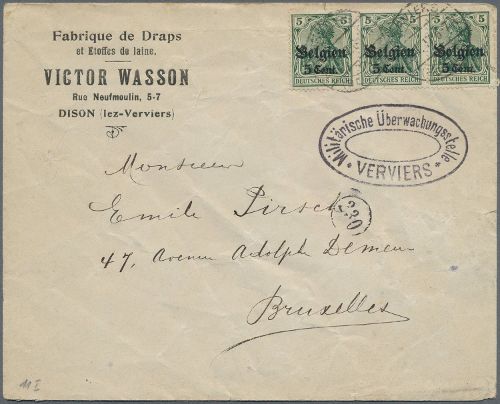 Fabrique de Draps
et Etoffes de laine.
VICTOR WASSON
Rue Neufmoulin, 5-7
DISON (lez-Verviers)
5 5 5 5 5 5
Belgien Belgien Belgien
5 Cent. 5 Cent. 5 Cent.
DEUTSCHES REICH DEUTSCHES REICH DEUTSCHES REICH
Militärische Überwachungsstelle
* VERVIERS *
Monsieur
Emile Pirsch
230
47, Avenue Adolphe Demeur
Bruxelles
11 I